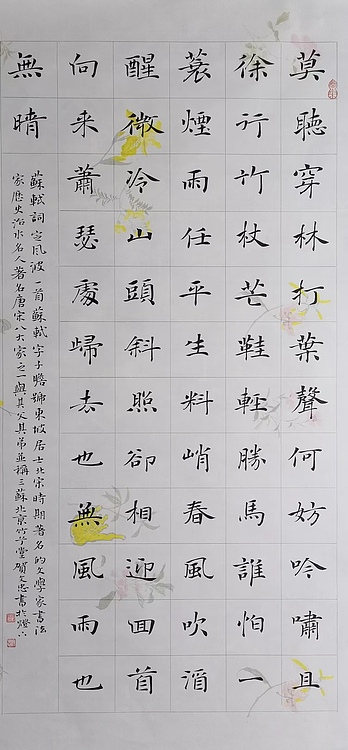 莫聽穿林打葉聲何妨吟嘯且
徐行竹杖芒鞋輕勝馬誰怕一
蓑煙雨任平生料峭春風吹酒
醒微冷山頭斜照卻相迎回首
向来蕭瑟處歸去也無風雨也
無晴
蘇軾詞定風波一首蘇軾字子瞻號東坡居士北宋時期著名的文學家書法
家歷史治水名人著名唐宋八大家之一與其父其弟並稱三蘇北京竹堂文忠書於燈下